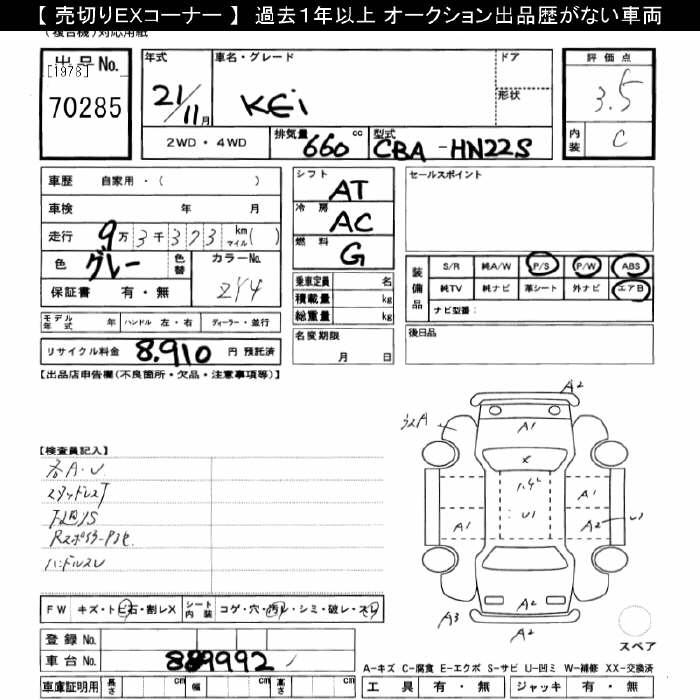 【 売切りEXコーナー 】 過去1年以上 オークション出品歴がない車両
(複合機)対応用紙
出品No.
[1978]
70285
年式
21/11月
車名・グレード
KEi
ドア
形状
評価点
3.5
内装
C
2WD・4WD
排気量
660 cc
型式
CBA-HN22S
車歴 自家用・( )
車検 年 月
走行 9万3千373 km マイル( )
色 グレー
色替
カラーNo.
ZY4
保証書 有・無
モデル年式 年 ハンドル 左・右 ディーラー・並行
リサイクル料金 8,910 円 預託済
シフト
AT
冷房
AC
燃料
G
乗車定員 名
積載量 kg
総重量 kg
名変期限
月 日
セールスポイント
装備品
S/R 純A/W P/S P/W ABS
純TV 純ナビ 革シート 外ナビ エアB
ナビ型番:
後日品
【出品店申告欄(不良箇所・欠品・注意事項等)】
【検査員記入】
各A・U
ハンドルスレ
A2
A1
X
U1
A1
A1
A2
A2
A3
A2
スペア
FW キズ・トビ石・割レX
シート内装 コゲ・穴・汚レ・シミ・破レ・スレ
登録No.
車台No. 889992
車庫証明用 長さ cm 幅 cm 高さ cm
A-キズ C-腐食 E-エクボ S-サビ U-凹ミ W-補修 XX-交換済
工具 有・無 ジャッキ 有・無